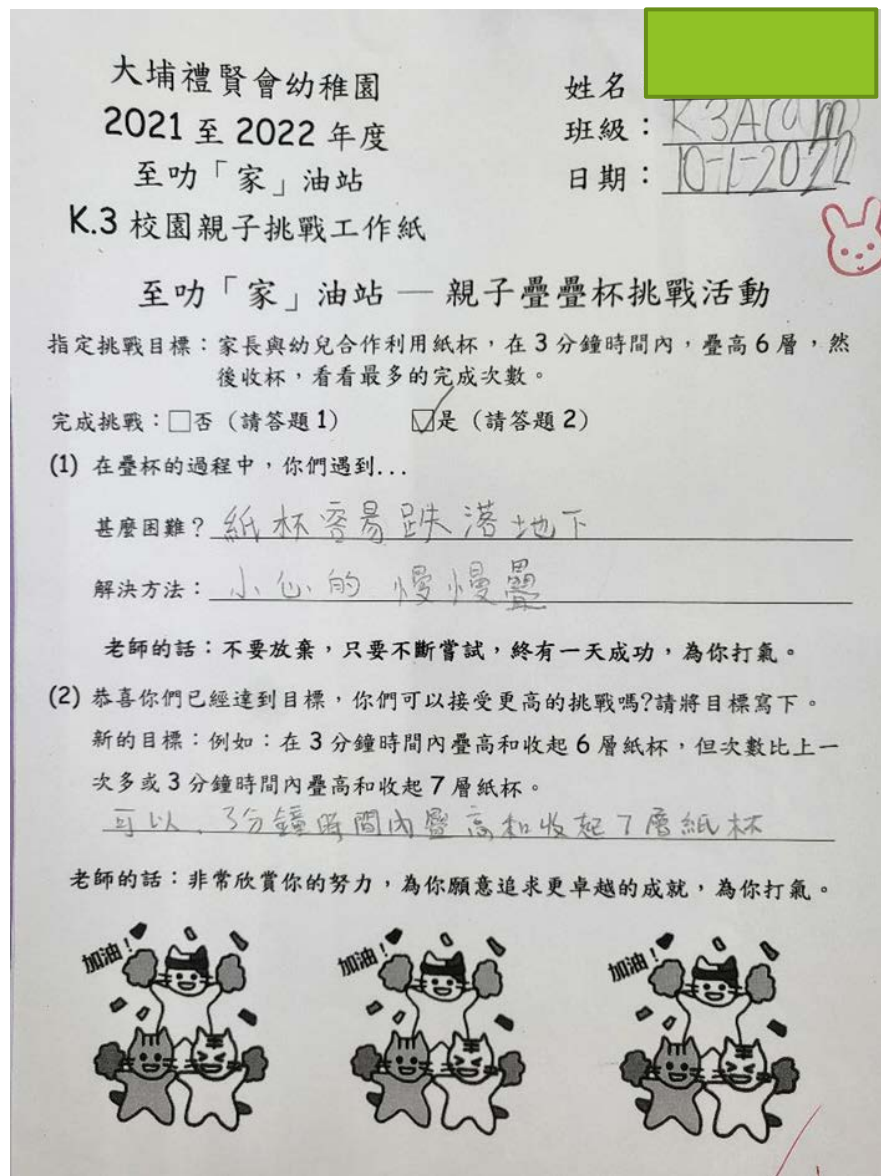 大埔禮賢會幼稚園
2021 至 2022 年度
至叻「家」油站
K.3 校園親子挑戰工作紙
姓名
班級：K3A(am)
日期：10-1-2022
至叻「家」油站 — 親子疊疊杯挑戰活動
指定挑戰目標：家長與幼兒合作利用紙杯，在 3 分鐘時間內，疊高 6 層，然
後收杯，看看最多的完成次數。
完成挑戰：□否（請答題 1） ☑是（請答題 2）
(1) 在疊杯的過程中，你們遇到...
甚麼困難？紙杯容易跌落地下
解決方法：小心的 慢慢疊
老師的話：不要放棄，只要不斷嘗試，終有一天成功，為你打氣。
(2) 恭喜你們已經達到目標，你們可以接受更高的挑戰嗎?請將目標寫下。
新的目標：例如：在 3 分鐘時間內疊高和收起 6 層紙杯，但次數比上一
次多或 3 分鐘時間內疊高和收起 7 層紙杯。
可以、3分鐘時間內疊高和收起7層紙杯
老師的話：非常欣賞你的努力，為你願意追求更卓越的成就，為你打氣。
加油！ 加油！ 加油！